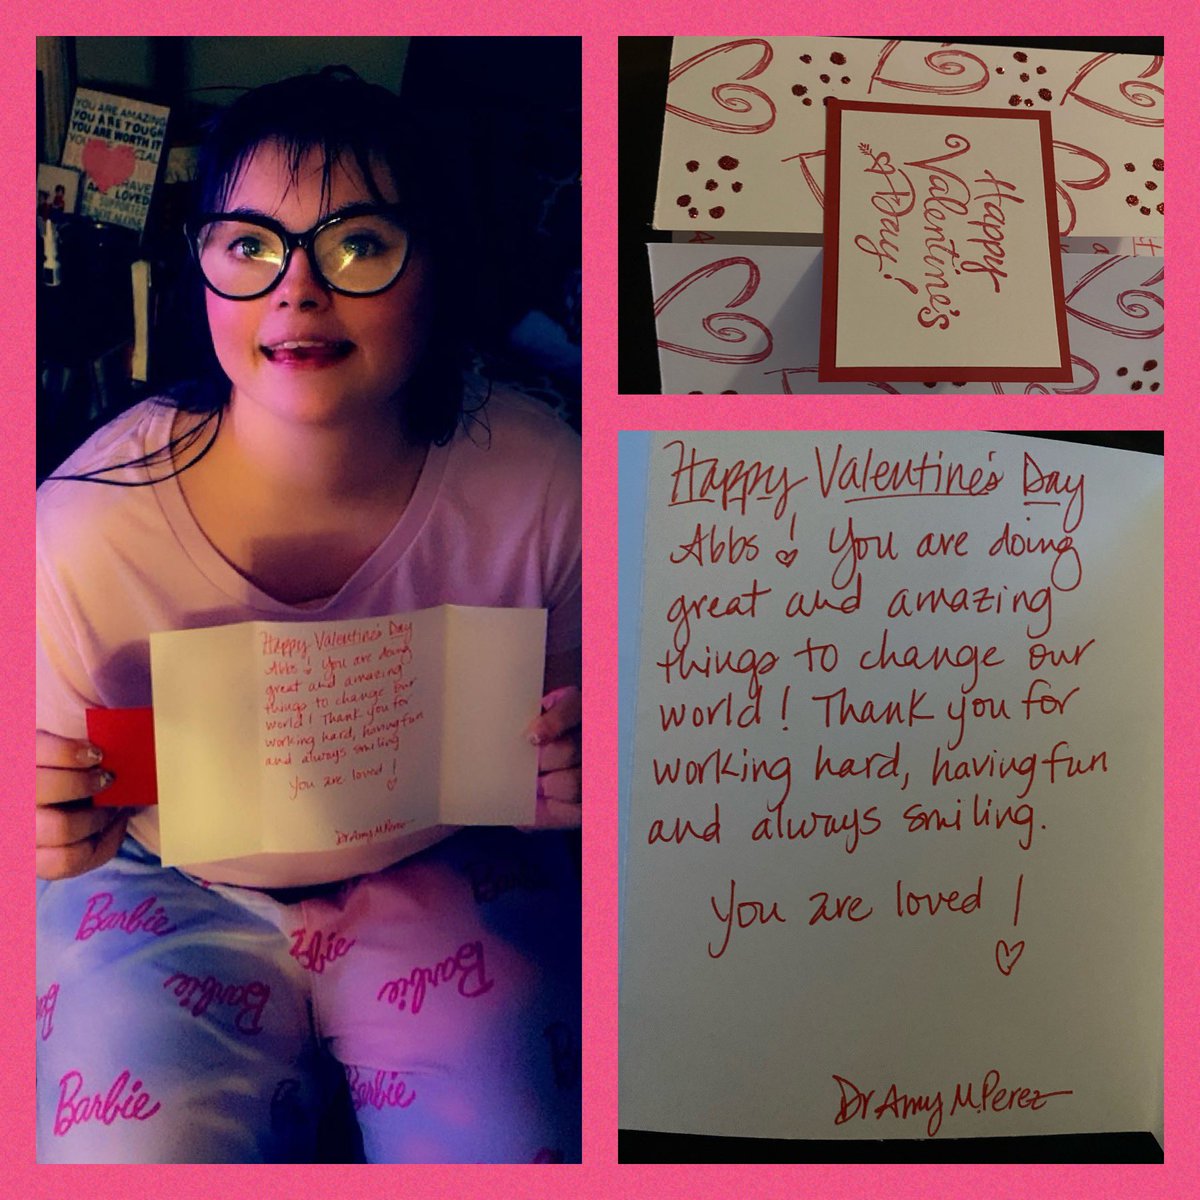 YOU ARE AMAZING
YOU ARE TOUGH
YOU ARE WORTH IT
LOVED
Happy Valentine's Day
Abbs! You are doing
great and amazing
things to change our
world! Thank you for
working hard, having fun
and always smiling
You are loved!
Dr Amy M. Perez
Barbie
Barbie
Barbie
Barbie
Barbie
Barbie
Happy
Valentine's
Day!
Happy Valentine's Day
Abbs! You are doing
great and amazing
things to change our
world! Thank you for
working hard, having fun
and always smiling.
You are loved!
Dr Amy M. Perez